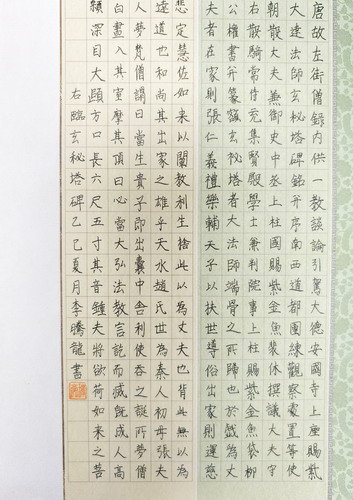 唐故左街僧録内供一教談論引駕大德安國寺上座賜紫
大達法師玄秘塔碑銘并序南西道都團練觀察處置等使
朝散大夫兼御史中丞上柱國賜紫金魚裴休撰議大夫守
右散騎常侍充集賢殿學士兼判院事上柱賜紫金魚袋柳
公權書并篆額玄秘塔者大法師端骨之所歸也於戲為丈
夫者在家則張仁義禮樂輔天子以扶世導俗出家則運慈
悲定慧佐如来以闡教利生捨此以為丈夫也背此無以為
達道也和尚其出家之雄乎天水趙氏世為秦人初母張夫
人夢梵僧謂曰當生貴子即出囊中舍利使吞之誕所夢僧
白晝入其室摩其頂曰必當大弘法教言訖而滅既成人高
顙深目大頤方口長六尺五寸其音鐘夫將欲荷如来之菩
右臨玄秘塔碑乙巳夏月李騰龍書